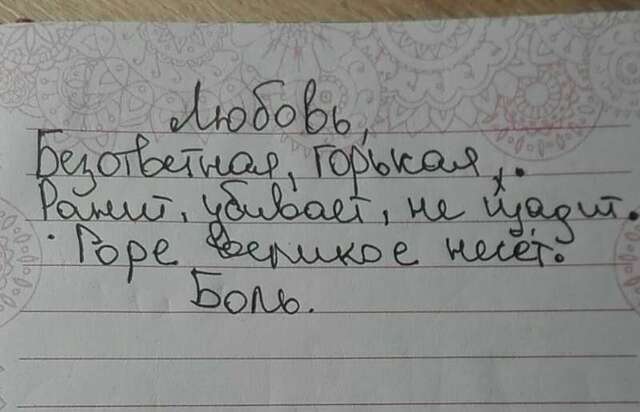 Любовь,
Безответная, горькая.
Ранит, убивает, не щадит.
Горе великое несёт.
Боль.